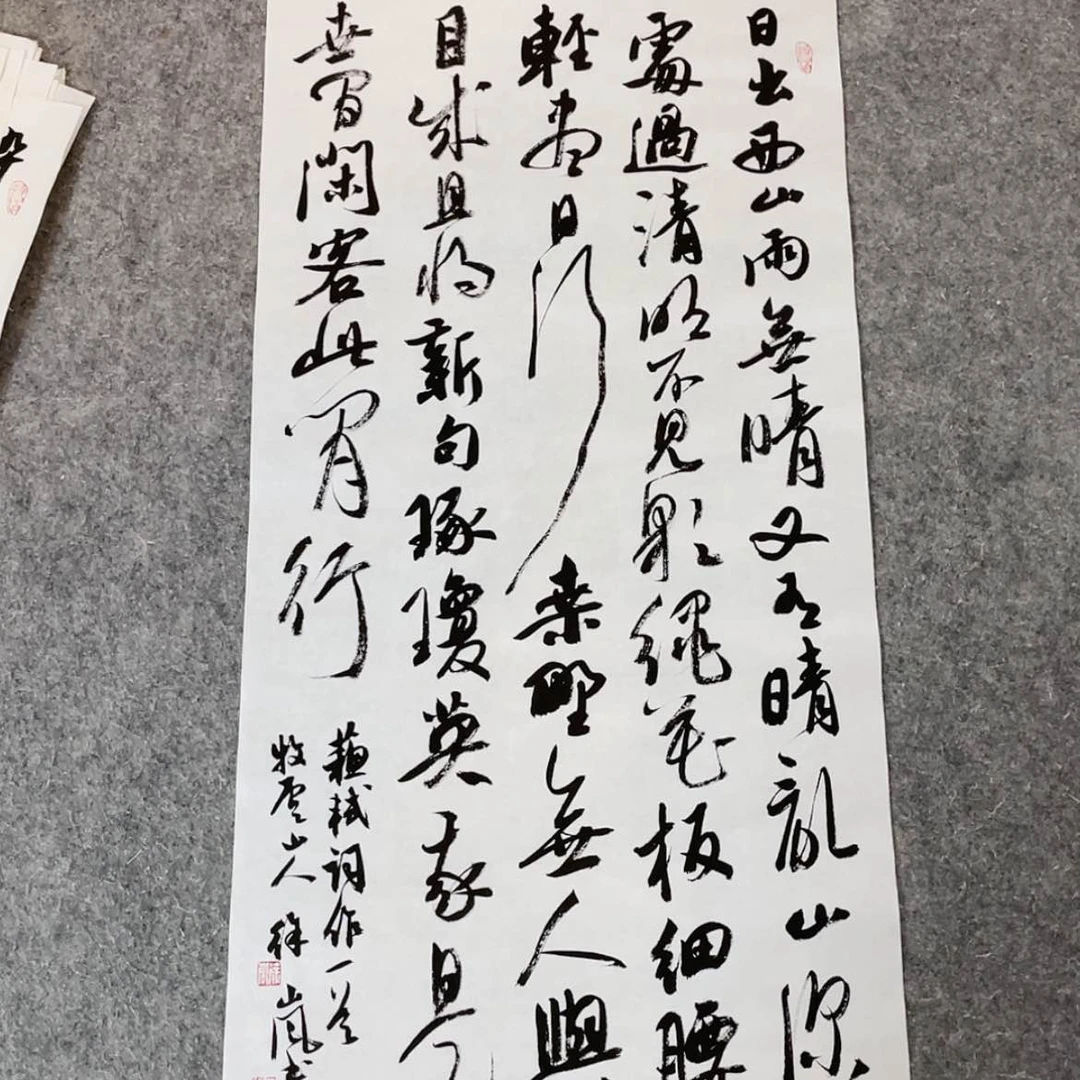 日出西山雨無晴又有晴亂山深
處過清明不見彩繩花板細腰
輕盡日行桑野無人與
目成且將新句琢瓊英我是
世間閑客此閑行
蘇軾詞作一首
牧雲山人徐嵐書